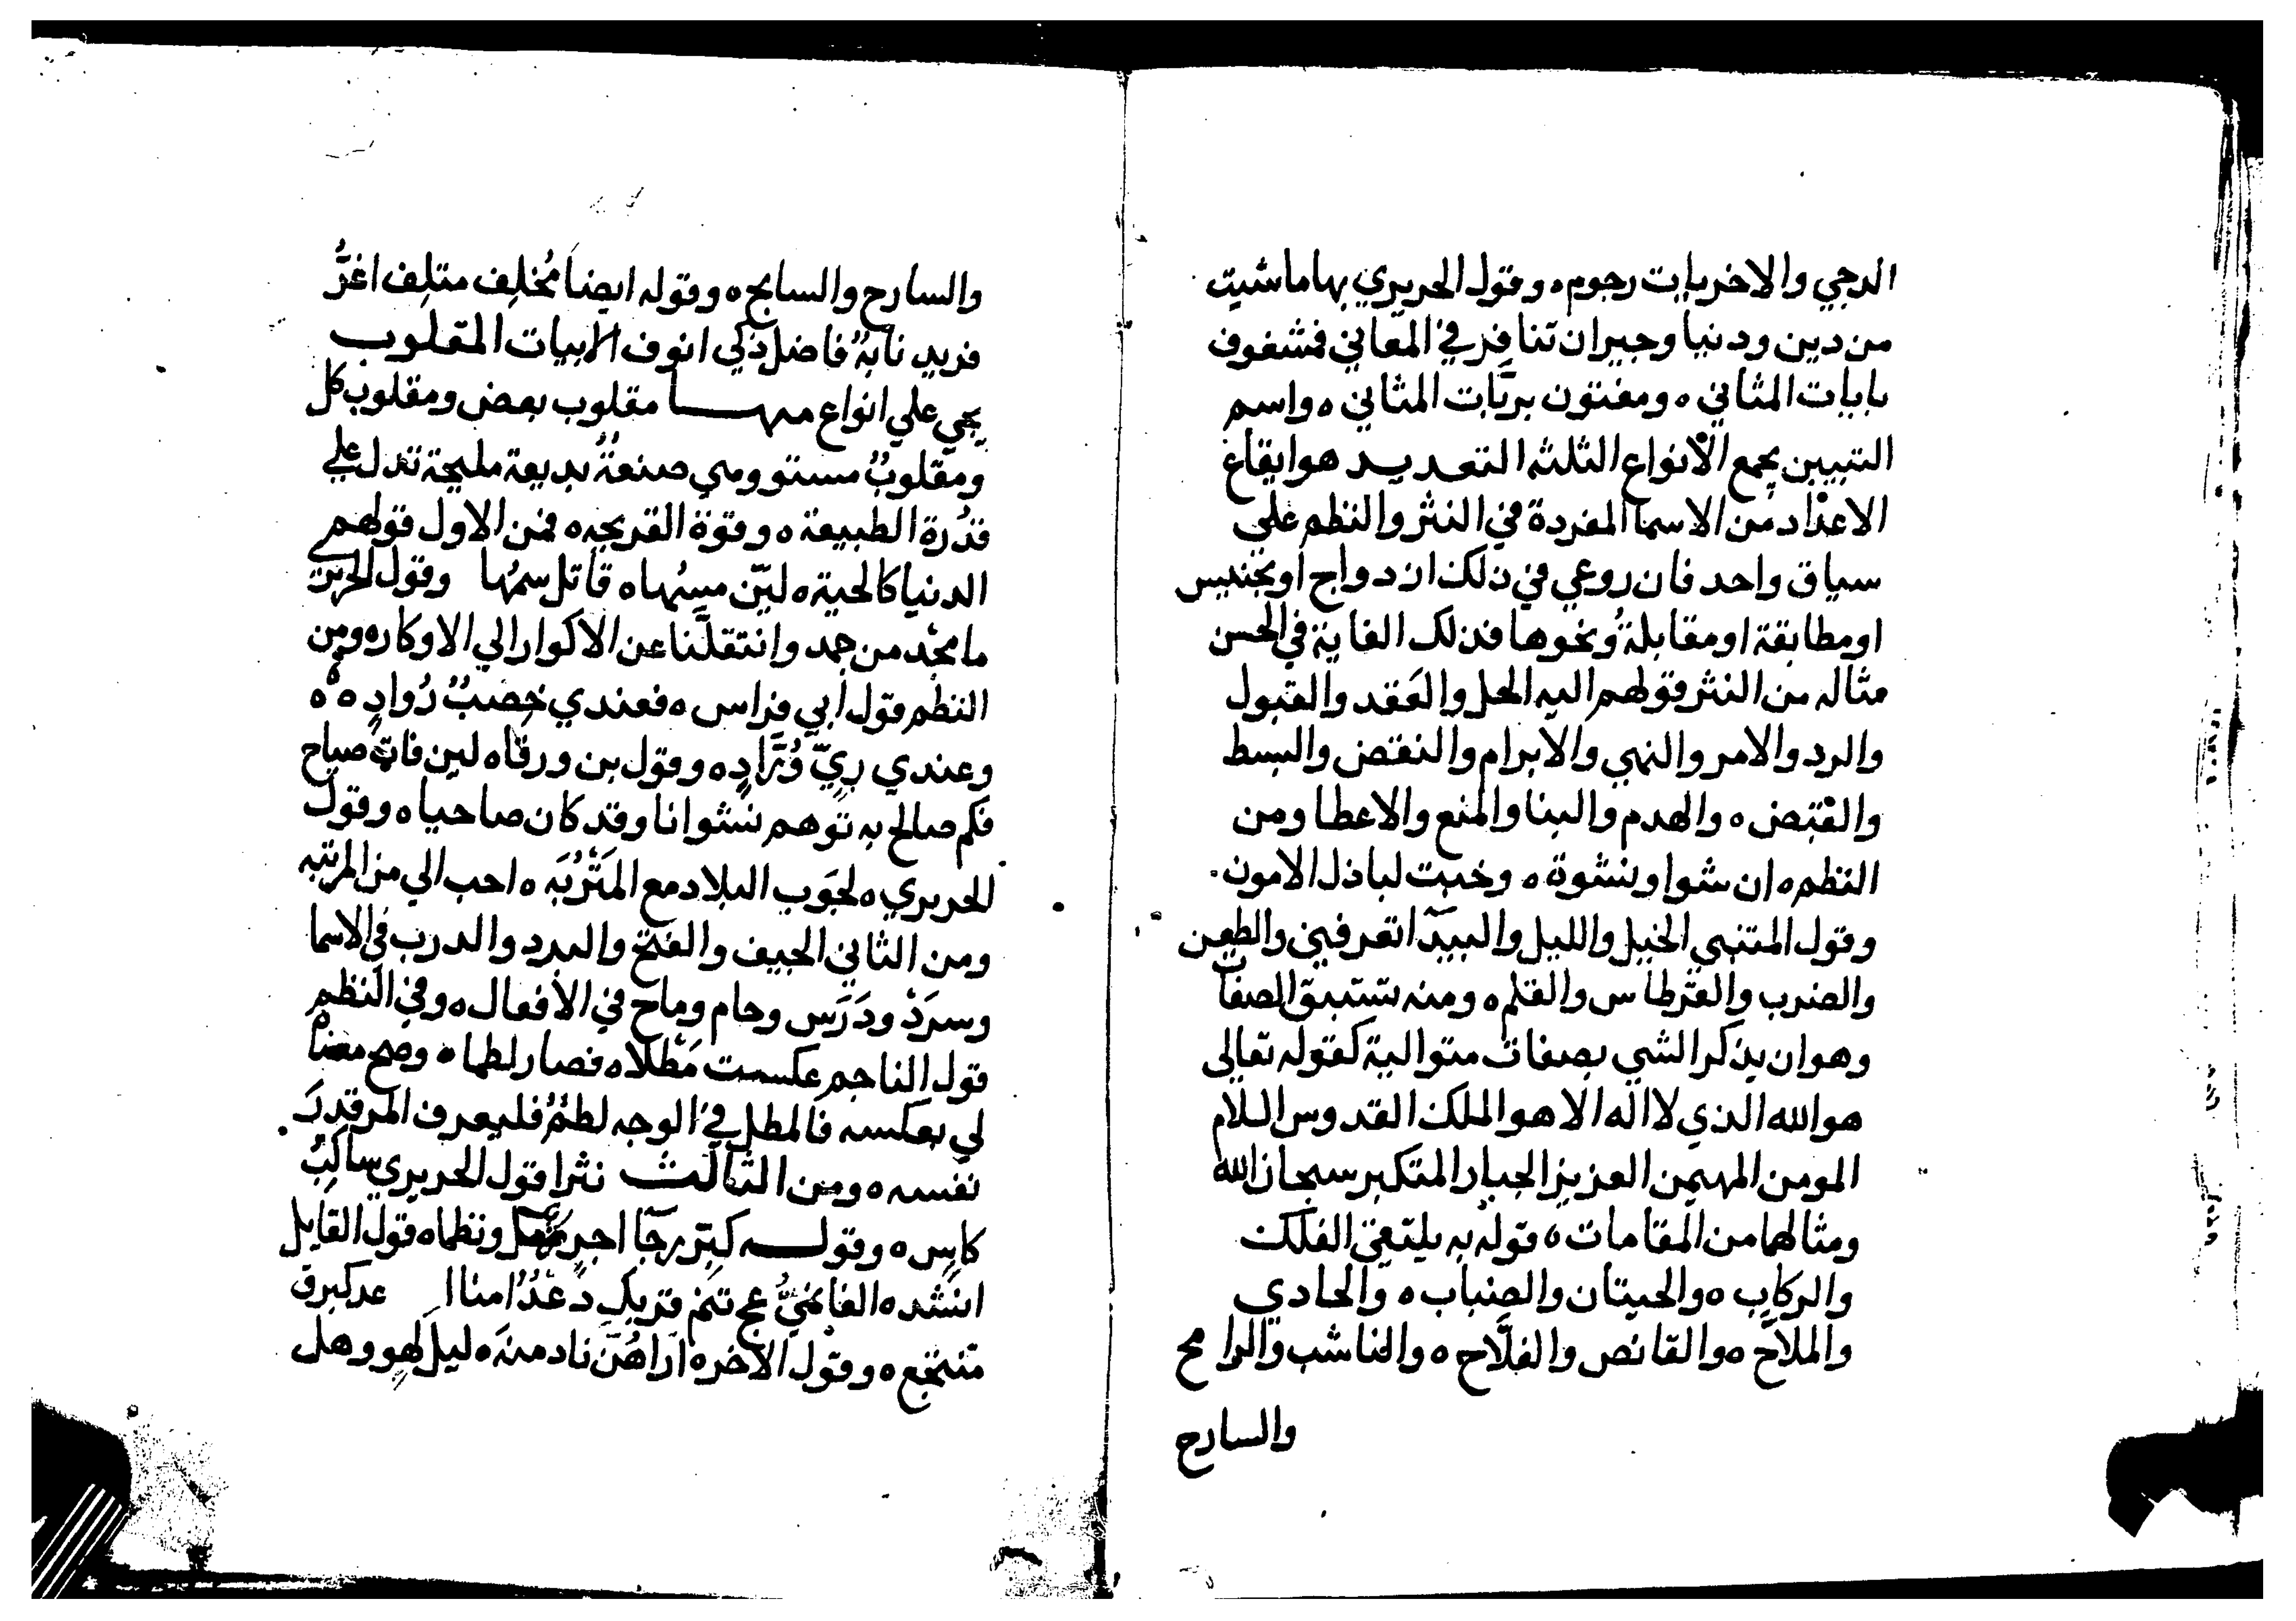 الدجي والاخريات رجوم ه وقول الحريري بها ما شيت
من دين ودنيا وجيران تنافر في المعاني فمشغوف
بايات المثاني ه ومفتون برنات المثاني ه واسم
التبيين يجمع الانواع الثلثه التعديد هو ايقاع
الاعداد من الاسما المفردة في النثر والنظم علي
سياق واحد فان روعي في ذلك ازدواج او تجنيس
او مطابقة او مقابلة ونحوها فذلك الغاية في الحسن
مثاله من النثر قولهم اليه الحل والعقد والقبول
والرد والامر والنهي والابرام والنقض والبسط
والقبض ه والهدم والبنا والمنع والاعطا ومن
النظم ه ان شوا ونشوة ه وخبب لباذل الامون
وقول المتنبي الخيل والليل والبيدآ تعرفني والطعن
والضرب والقرطاس والقلم ه ومنه تنسيق الصفات
وهو ان يذكر الشي بصفات متوالية كقوله تعالى
هو الله الذي لا اله الا هو الملك القدوس السلام
المومن المهيمن العزيز الجبار المتكبر سبحان الله
ومثالها من المقامات ه قوله به يلتقي الفلك
والركاب ه والحيتان والضباب ه والحادي
والملاح ه والقانص والفلاح ه والناشب والرامح
والسارح
والسارح والسابح ه وقوله ايضا مُخلِف متلِف اغرُّ
فريد نابهٌ فاضل ذكي انوف الابيات المقلوب
يجي علي انواع منها مقلوب بعض ومقلوب كل
ومقلوبٌ مستو وهي صنعةٌ بديعة مليحة تدل علي
قدرة الطبيعة ه وقوة القريحه ه فمن الاول قولهم
الدنيا كالحية ه ليّن مسّها ه قاتل سمّها وقول الحريري
ما تجّد من جمد وانتقلنا عن الاكوار الي الاوكار ه ومن
النظم قول ابي فراس ه فعندي خِصبُ رُوادٍ ه ه
وعندي رِيّ وُرَّادٍ ه وقول بن ورقا ه لين فات صباح
فكم صالح به توهم نشوانا وقد كان صاحيا ه وقول
الحريري ه لجَوب البلاد مع المَتْرَبَه ه احب الي من المرتبه
ومن الثاني الحيف والفتح والبرد والدرب في الاسما
وسرَدَ ودَرَس وحام وماح في الافعال ه وفي النظم
قول الناجم عكست مَطْلاه فصار لطما ه وصح معناه
لي بعكسه فالمطل في الوجه لطمٌ فليعرف المر قدرَ
نفسه ه ومن الثالث نثرا قول الحريري ساكِبُ
كاسٍ ه وقوله كبّر رجآ اجر ربك ونظما ه قول القايل
انشده الغانميُّ عج تنم قربك دعد امنا
تنتجع ه وقول الاخر ه اراهُنَّ نادمنه ه ليلَ لهوٍ وهل